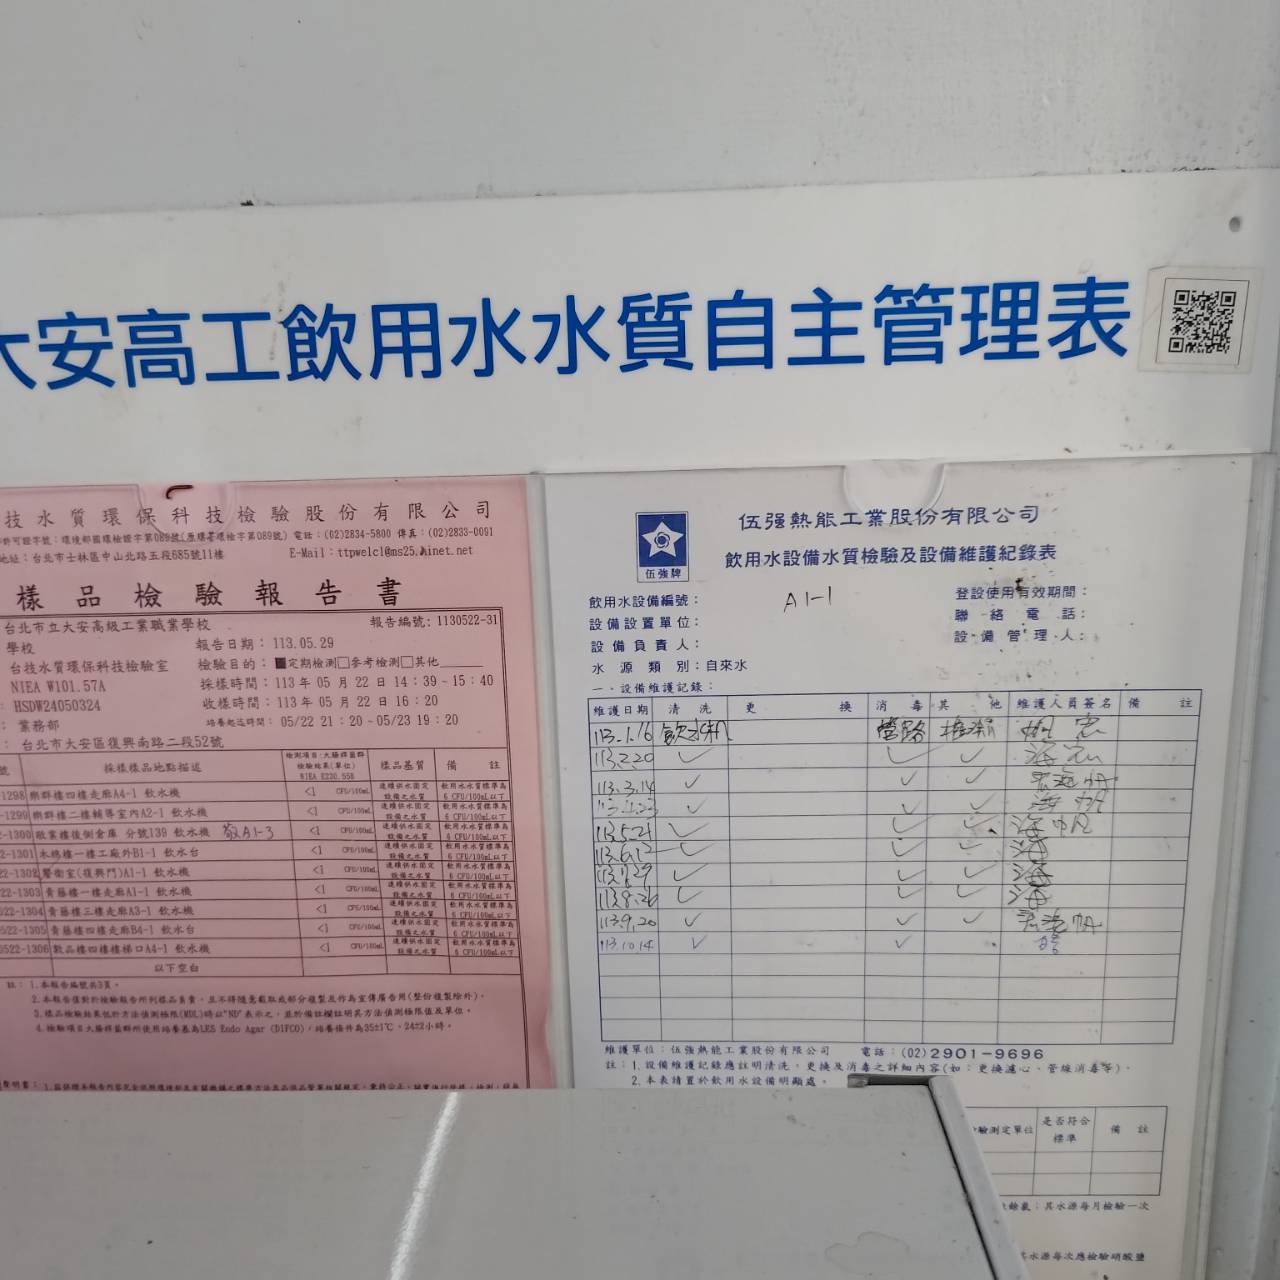 大安高工飲用水水質自主管理表
技水質環保科技檢驗股份有限公司
許可證字號：環境部國環檢證字第089號(原環署環檢字第089號) 電話：(02)2834-5800 傳真：(02)2833-0091
地址：台北市士林區中山北路五段685號11樓 E-Mail：ttpwelcl@ms25.hinet.net
樣品檢驗報告書
台北市立大安高級工業職業學校 報告編號：1130522-31
學校 報告日期：113.05.29
台技水質環保科技檢驗室 檢驗目的：■定期檢測□參考檢測□其他
NIEA W101.57A 採樣時間：113 年 05 月 22 日 14：39~15：40
HSDW24050324 收樣時間：113 年 05 月 22 日 16：20
：業務部 培養起迄時間：05/22 21：20~05/23 19：20
：台北市大安區復興南路二段52號
號 採樣樣品地點描述 檢測項目:大腸桿菌群 檢驗結果(單位) NIEA E230.55B 樣品基質 備註
-1298 樂群樓四樓走廊A4-1 飲水機 <1 CFU/100mL 連續供水固定設備之水質 飲用水水質標準為6 CFU/100mL以下
-1299 樂群樓二樓輔導室內A2-1 飲水機 <1 CFU/100mL 連續供水固定設備之水質 飲用水水質標準為6 CFU/100mL以下
2-1300 敬業樓後側倉庫 分號139 飲水機 敬A1-3 <1 CFU/100mL 連續供水固定設備之水質 飲用水水質標準為6 CFU/100mL以下
22-1301 木棉樓一樓工廠外B1-1 飲水台 <1 CFU/100mL 連續供水固定設備之水質 飲用水水質標準為6 CFU/100mL以下
22-1302 警衛室(復興門)A1-1 飲水機 <1 CFU/100mL 連續供水固定設備之水質 飲用水水質標準為6 CFU/100mL以下
22-1303 青藤樓一樓走廊A1-1 飲水機 <1 CFU/100mL 連續供水固定設備之水質 飲用水水質標準為6 CFU/100mL以下
522-1304 青藤樓三樓走廊A3-1 飲水機 <1 CFU/100mL 連續供水固定設備之水質 飲用水水質標準為6 CFU/100mL以下
522-1305 青藤樓四樓走廊B4-1 飲水台 <1 CFU/100mL 連續供水固定設備之水質 飲用水水質標準為6 CFU/100mL以下
0522-1306 敦品樓四樓樓梯口A4-1 飲水機 <1 CFU/100mL 連續供水固定設備之水質 飲用水水質標準為6 CFU/100mL以下
以下空白
註：1.本報告編號共3頁。
2.本報告僅對於檢驗報告所列樣品負責，且不得隨意截取或部分複製及作為宣傳廣告用(整份複製除外)。
3.樣品檢驗結果低於方法偵測極限(MDL)時以"ND"表示之，並於備註欄註明其方法偵測極限值及單位。
4.檢驗項目大腸桿菌群所使用培養基為LES Endo Agar (DIFCO)，培養條件為35±1℃、24±2小時。
聲明書：
伍強牌
伍强熱能工業股份有限公司
飲用水設備水質檢驗及設備維護紀錄表
飲用水設備編號： A1-1 登設使用有效期間：
設備設置單位： 聯絡電話：
設備負責人： 設備管理人：
水源類別：自來水
一．設備維護記錄：
維護日期 清洗 更換 消毒 其他 維護人員簽名 備註
113.1.16 飲水机 管路
113.2.20 ✓ ✓ ✓
113.3.14 ✓ ✓ ✓
✓ ✓ ✓
113.5.21 ✓ ✓ ✓
113.6.12 ✓ ✓ ✓
✓ ✓ ✓
113.8.26 ✓ ✓ ✓
113.9.20 ✓ ✓ ✓
113.10.14 ✓ ✓
維護單位：伍強熱能工業股份有限公司 電話：(02)2901-9696
註：1.設備維護記錄應註明清洗、更換及消毒之詳細內容(如：更換濾心、管線消毒等)．
2.本表請置於飲用水設備明顯處．
檢驗測定單位 是否符合標準 備註
：其水源每月檢驗一次
其水源每次應檢驗硝酸鹽